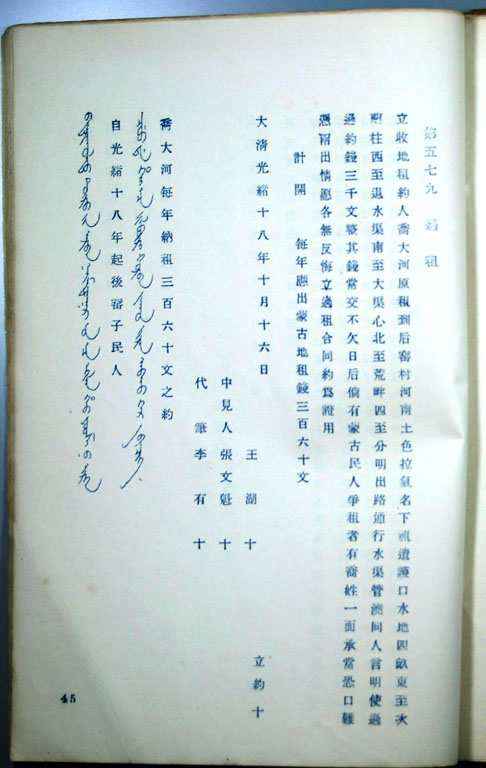 第五七九 過租
立收地租約人喬大河原租到后窰村河南土色拉氣名下祖遺護口水地四畝東至次
爾柱西至退水渠南至大渠心北至荒畔四至分明出路通行水渠管澆同人言明使過
過約錢三千文整其錢當交不欠日后倘有蒙古民人爭租者有喬姓一面承當恐口難
憑兩出情愿各無反悔立過租合同約爲證用
計開 每年應出蒙古地租錢三百六十文
大清光緒十八年十月十六日 立約十
王湖十
中見人張文魁十
代筆李有十
喬大河每年納租三百六十文之約
自光緒十八年起後窰子民人
45